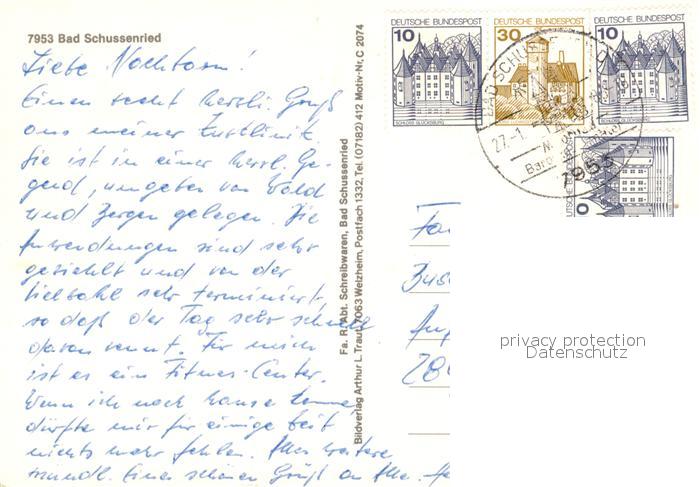 7953 Bad Schussenried
Liebe Nachbarn!
Einen recht herzli. Gruß
aus meiner Kurklinik.
Sie ist in einer herrl. Ge-
gend, umgeben von Wald
und Bergen gelegen. Die
Anwendungen sind sehr
gezielt und von der
Vielzahl sehr terminiert,
so daß der Tag sehr schnell
davon rennt. Für mich
ist es ein Fitness-Center.
Wenn ich nach Hause komme
dürfte mir für einige Zeit
nichts mehr fehlen. Alles weitere
mündl. Einen schönen Gruß an Alle.
Fa. R. Abt. Schreibwaren, Bad Schussenried
Bildverlag Arthur L. Traut, 7063 Welzheim, Postfach 1332, Tel. (07182) 412 Motiv-Nr. C 2074
DEUTSCHE BUNDESPOST
10
SCHLOSS GLÜCKSBURG
DEUTSCHE BUNDESPOST
30
DEUTSCHE BUNDESPOST
10
BAD SCHUSSENRIED
27.-1.
7953
privacy protection
Datenschutz